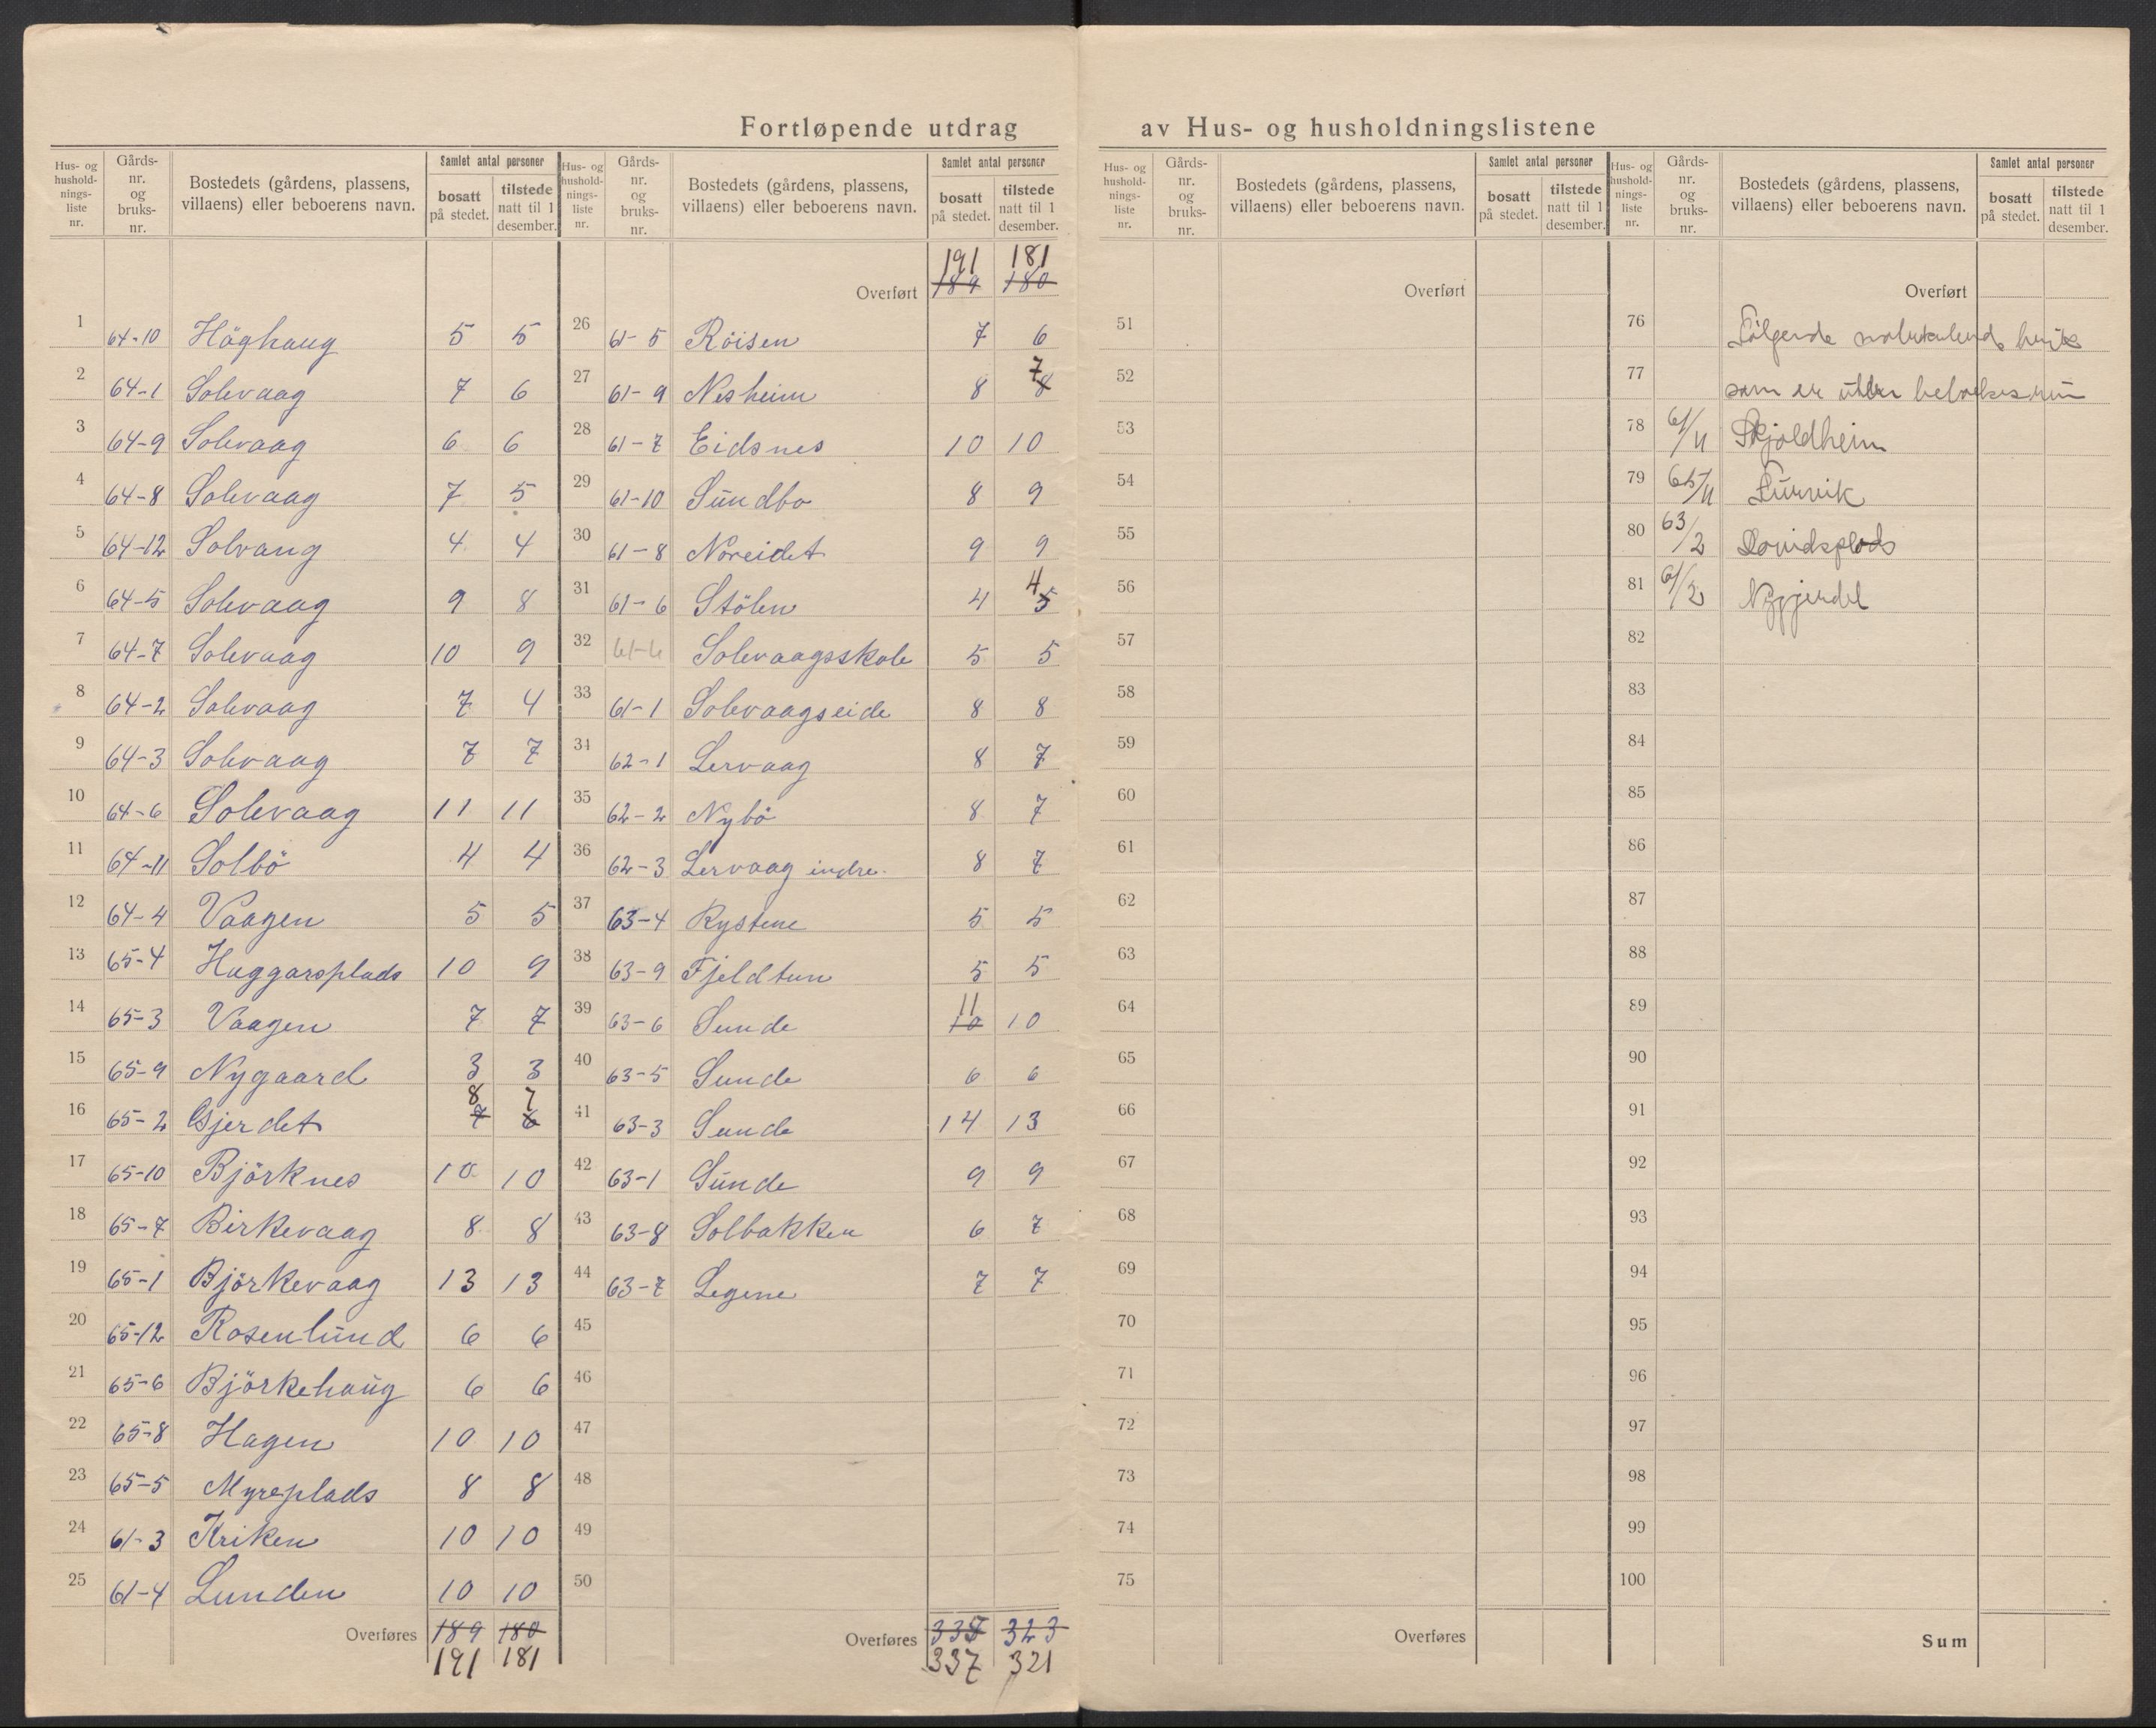 Fortløpende utdrag av Hus- og husholdningslistene
Hus- og husholdnings-liste nr. | Gårds-nr. og bruks-nr. | Bostedets (gårdens, plassens, villaens) eller beboerens navn. | Samlet antal personer bosatt på stedet. | tilstede natt til 1 desember.
1 64-10 Höghaug 5 5
2 64-1 Solevaag 7 6
3 64-9 Solevaag 6 6
4 64-8 Solevaag 7 5
5 64-12 Solvang 4 4
6 64-5 Solevaag 9 8
7 64-7 Solevaag 10 9
8 64-2 Solevaag 7 4
9 64-3 Solevaag 7 7
10 64-6 Solevaag 11 11
11 64-11 Solbö 4 4
12 64-4 Vaagen 5 5
13 65-4 Haggarsplads 10 9
14 65-3 Vaagen 7 7
15 65-9 Nygaard 3 3
8 7
16 65-2 Gjerdet 7 6
17 65-10 Björknes 10 10
18 65-7 Birkevaag 8 8
19 65-1 Björkevaag 13 13
20 65-12 Rosenlund 6 6
21 65-6 Björkehaug 6 6
22 65-8 Hagen 10 10
23 65-5 Myreplads 8 8
24 61-3 Kriken 10 10
25 61-4 Lunden 10 10
Overføres 189 180
191 181
Hus- og husholdnings-liste nr. | Gårds-nr. og bruks-nr. | Bostedets (gårdens, plassens, villaens) eller beboerens navn. | Samlet antal personer bosatt på stedet. | tilstede natt til 1 desember.
191 181
Overført 189 180
26 61-5 Röisen 7 6
7
27 61-9 Nesheim 8 8
28 61-7 Eidsnes 10 10
29 61-10 Sundbo 8 9
30 61-8 Noreidet 9 9
4
31 61-6 Stölen 4 5
32 61-6 Solevaagsskole 5 5
33 61-1 Solevaagseide 8 8
34 62-1 Lervaag 8 7
35 62-2 Nybö 8 7
36 62-3 Lervaag indre. 8 7
37 63-4 Rystene 5 5
38 63-9 Fjeldtun 5 5
11
39 63-6 Sunde 10 10
40 63-5 Sunde 6 6
41 63-3 Sunde 14 13
42 63-1 Sunde 9 9
43 63-8 Solbakken 6 7
44 63-7 Legene 7 7
45
46
47
48
49
50
Overføres 335 323
337 321
Hus- og husholdnings-liste nr. | Gårds-nr. og bruks-nr. | Bostedets (gårdens, plassens, villaens) eller beboerens navn. | Samlet antal personer bosatt på stedet. | tilstede natt til 1 desember.
Overført
51
52
53
54
55
56
57
58
59
60
61
62
63
64
65
66
67
68
69
70
71
72
73
74
75
Overføres
Hus- og husholdnings-liste nr. | Gårds-nr. og bruks-nr. | Bostedets (gårdens, plassens, villaens) eller beboerens navn. | Samlet antal personer bosatt på stedet. | tilstede natt til 1 desember.
Overført
76 Fölgende
77 som er uten
78 61/11 Skjoldheim
79 65/11 Furvik
80 63/2 Davidsplads
81 61/2
82
83
84
85
86
87
88
89
90
91
92
93
94
95
96
97
98
99
100
Sum